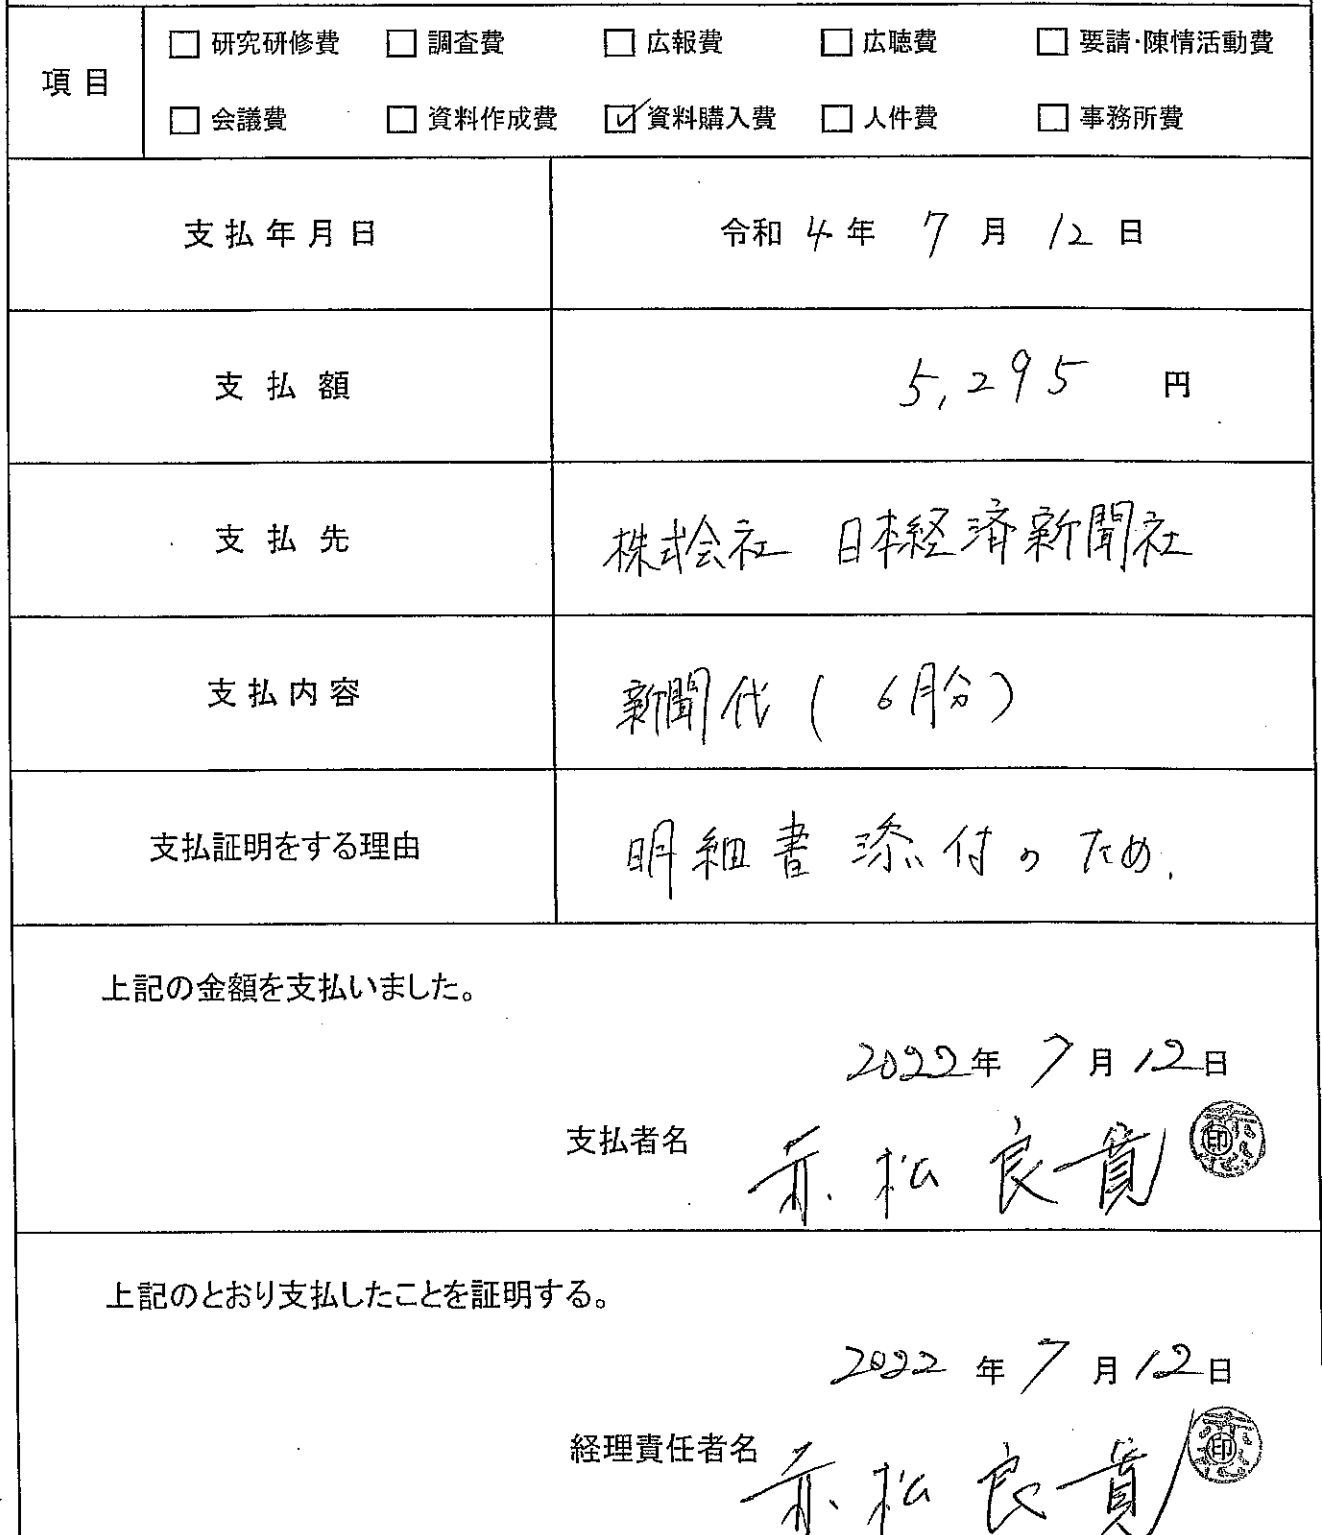 項目
□ 研究研修費 □ 調査費 □ 広報費 □ 広聴費 □ 要請・陳情活動費
□ 会議費 □ 資料作成費 ☑ 資料購入費 □ 人件費 □ 事務所費
支払年月日 令和 4 年 7 月 12 日
支払額 5,295 円
支払先 株式会社 日本経済新聞社
支払内容 新聞代(6月分)
支払証明をする理由 明細書添付のため.
上記の金額を支払いました。
2022年 7月12日
支払者名 赤松 良貴 印
上記のとおり支払したことを証明する。
2022年 7月12日
経理責任者名 赤松 良貴 印